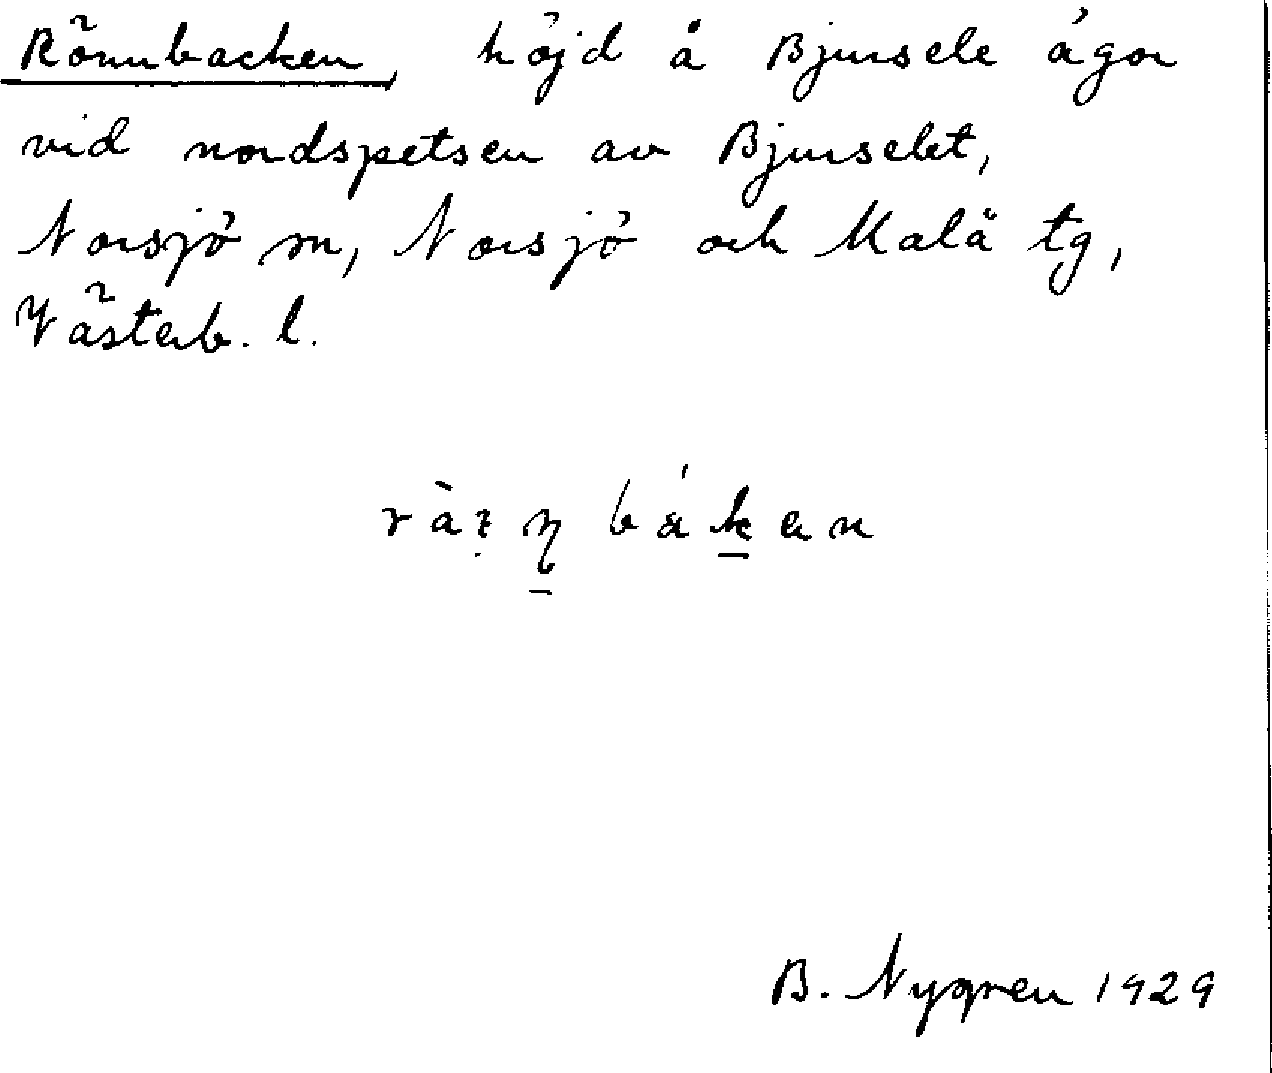 Rönnbacken, höjd å Bjursele ägor
vid nordspetsen av Bjurselet,
Norsjö sn, Norsjö och Malå tg,
Västerb. l.
bákan
B. Nygren 1929